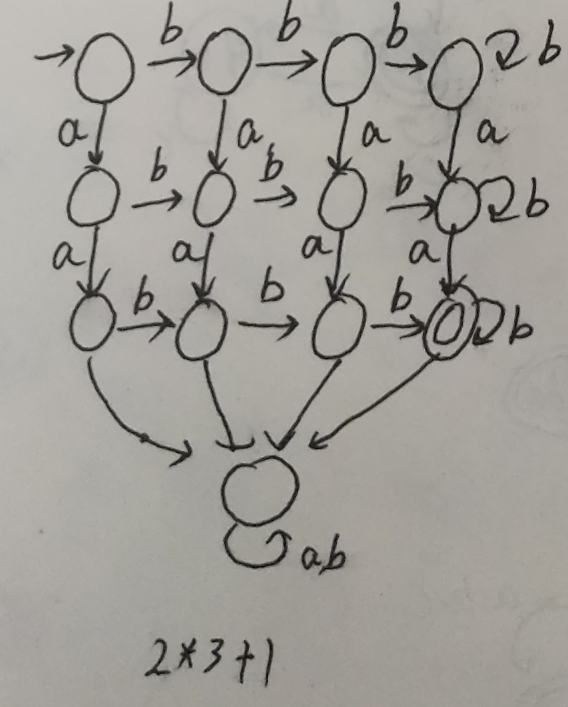 b b b b
a a a a
b b b b
a a a a
b b b b
a,b
2*3+1